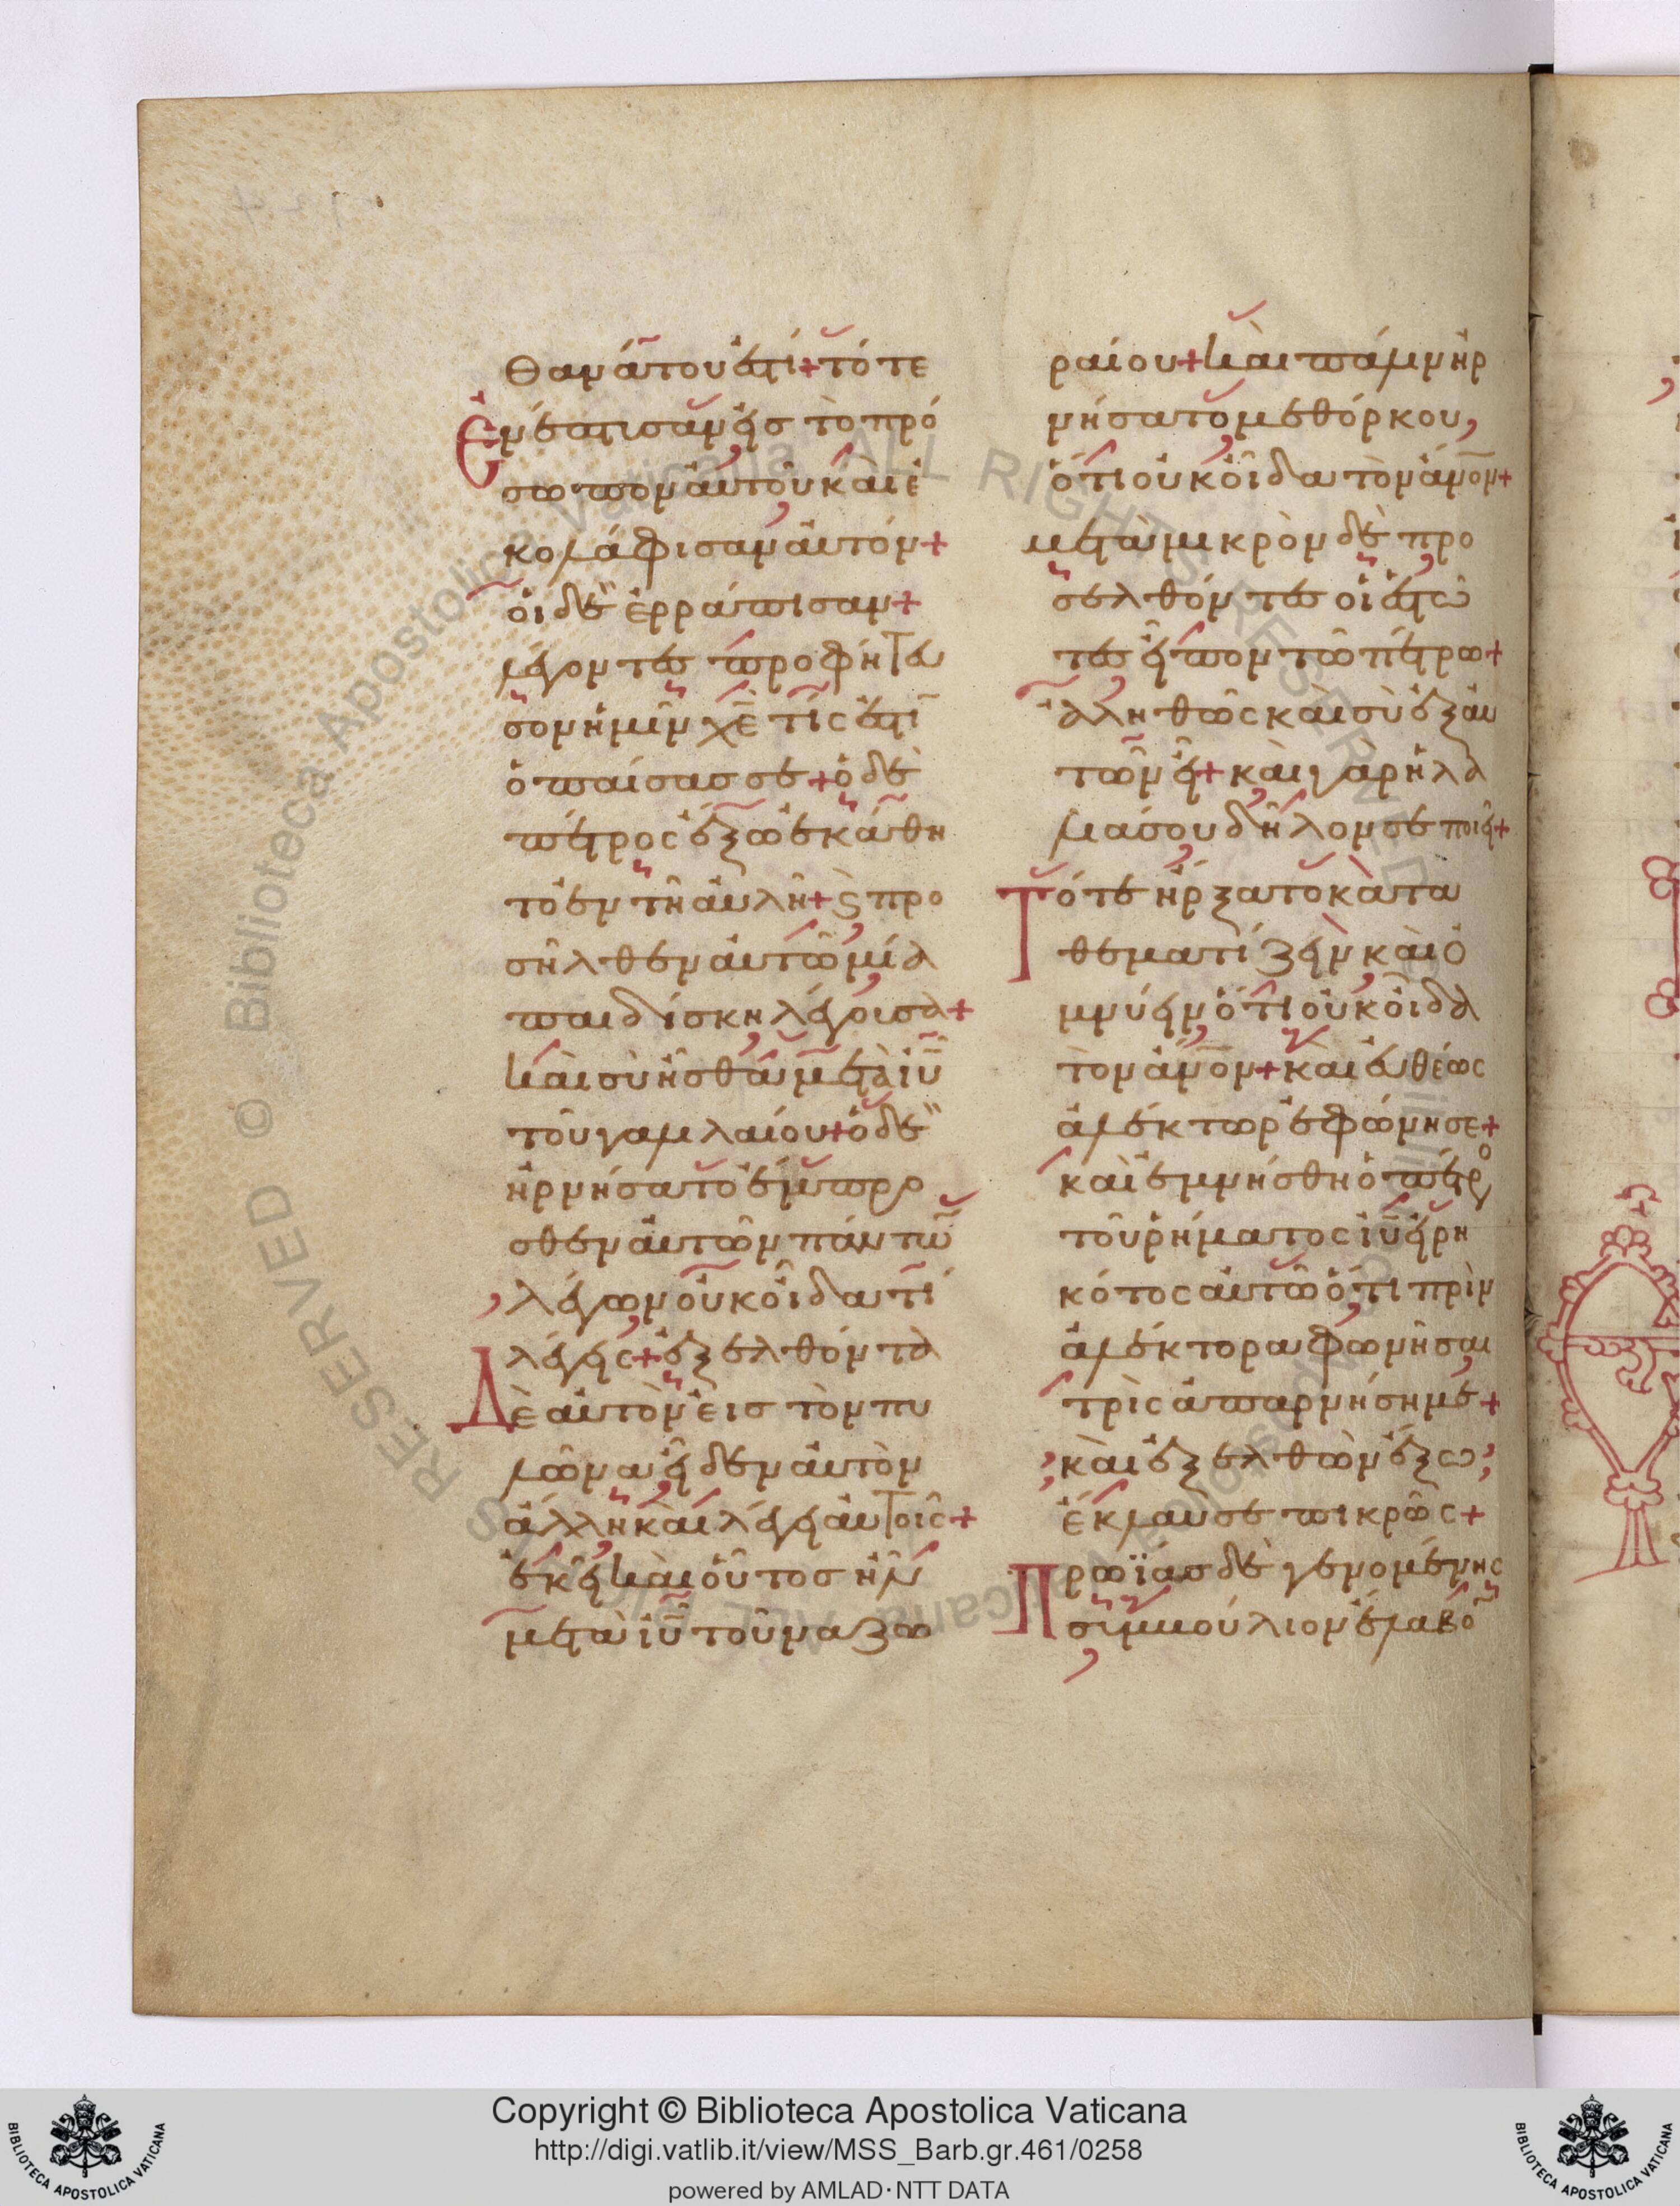 θανάτου ἐστί + τότε
ἐνέπτισαν εἰς τὸ πρό
σωπον αὐτοῦ καὶ ἐ
κολάφισαν αὐτόν +
οἱ δὲ ἐρράπισαν +
λέγοντες προφήτευ
σον ἡμῖν χ̅ε̅ τίς ἐστϊ
ὁ παίσας σε + ὁ δὲ
πέτρος ἔξω ἐκάθη
το ἐν τῆ αὐλῆ + ϗ προ
σῆλθεν αὐτῶ μία
παιδίσκη λέγουσα +
καὶ σὺ ἦσθα μετὰ ἰ̅υ̅
τοῦ γαλιλαίου + ὁ δὲ
ἠρνήσατο ἔμπρο
σθεν αὐτῶν πάντω̅
λέγων οὐκ οἶδα τί
λέγεις + ἐξελθόντα
Δὲ αὐτὸν εἰς τὸν πυ
λῶνα εἶδεν αὐτὸν
ἄλλη καὶ λέγει αὐτοῖς +
ἐκεῖ καὶ οὗτος ἦν
μετὰ ἰ̅υ̅ τοῦ ναζω
ραίου + καὶ πάλιν ἠρ
νήσατο μεθ ὅρκου,
ὅτι οὐκ οἶδα τὸν ἄ̅ν̅ο̅ν̅ +
μετὰ μικρὸν δὲ προ
σελθόντες οἱ ἑστῶ
τες εἶπον τῶ πέτρω +
ἀληθῶς καὶ σὺ ἐξ αὐ
τῶν εἶ + καὶ γὰρ ἡ λα
λιά σου δῆλον σε ποιεῖ +
Τότε ἤρξατο κατα
θεματίζειν καὶ ὀ
μνύειν ὅτι οὐκ οἶδα
τὸν ἄ̅ν̅ο̅ν̅ + καὶ εὐθέως
ἀλέκτωρ ἐφώνησε +
καὶ ἐμνήσθη ὁ πέτρο
τοῦ ῥήματος ἰ̅υ̅ εἰρη
κότος αὐτῶ ὅτι πρὶν
ἀλέκτορα φωνῆσαι
τρὶς ἀπαρνήση με +
καὶ ἐξελθὼν ἔξω,
ἔκλαυσε πικρῶς +
Πρωΐας δὲ γενομένης
συμβούλιον ἔλαβο̅
Copyright © Biblioteca Apostolica Vaticana
http://digi.vatlib.it/view/MSS_Barb.gr.461/0258
powered by AMLAD·NTT DATA